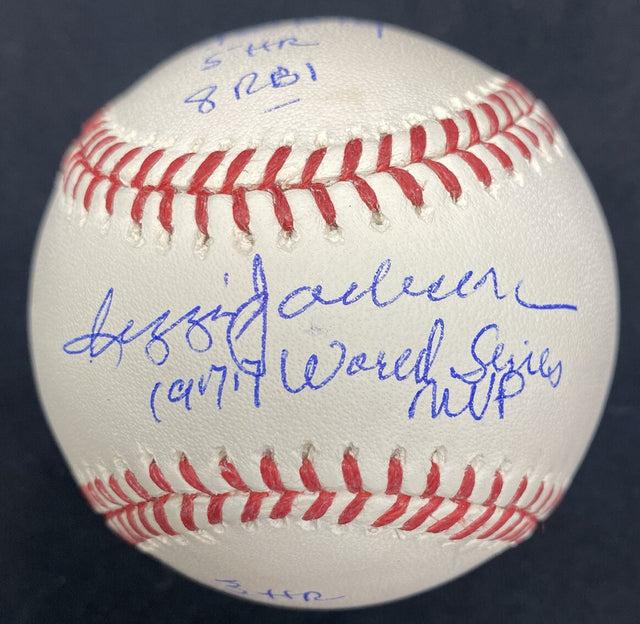 5 HR
8 RBI
Reggie Jackson
1977 World Series
MVP
3 HR